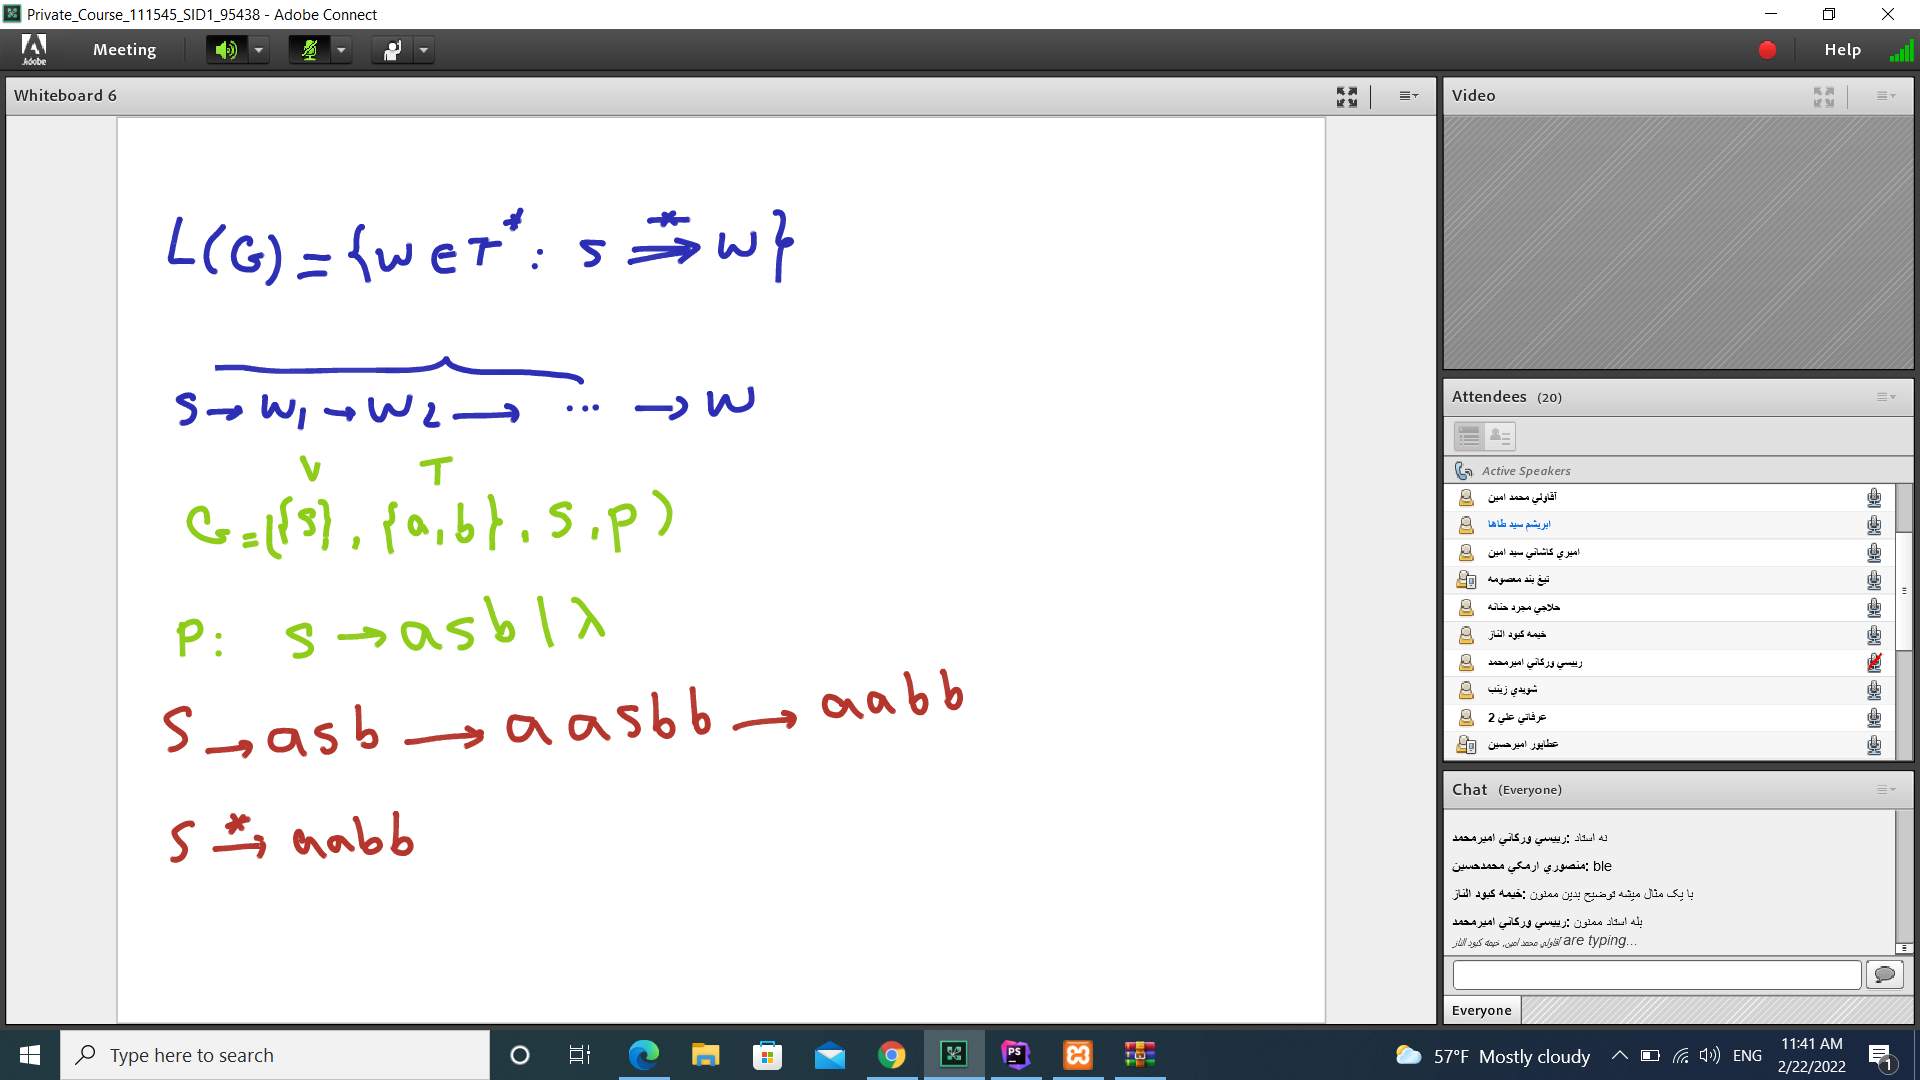 Private_Course_111545_SID1_95438 - Adobe Connect
Adobe
Meeting
Help
Whiteboard 6
L(G) = {w ∈ T* : S ⇒* w}
S → w1 → w2 → ... → w
V T
G = ({S}, {a,b}, S, P)
P: S → aSb | λ
S → aSb → aaSbb → aabb
S →* aabb
Video
Attendees (20)
Active Speakers
آقاولي محمد امين
ابريشم سيد طاها
اميري كاشاني سيد امين
تيغ بند معصومه
حلاجي مجرد حنانه
خيمه كبود الناز
رييسي وركاني اميرمحمد
شويدي زينب
عرفاتي علي 2
عطاپور اميرحسين
Chat (Everyone)
رييسي وركاني اميرمحمد: نه استاد
منصوري ارمكي محمدحسين: ble
خيمه كبود الناز: با یک مثال میشه توضیح بدین ممنون
رييسي وركاني اميرمحمد: بله استاد ممنون
آقاولي محمد امين, خيمه كبود الناز are typing...
Everyone
Type here to search
PS
57°F Mostly cloudy
ENG
11:41 AM
2/22/2022
1